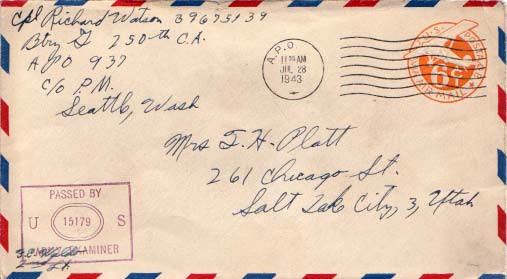 Cpl Richard Watson 39675139
Btry G 250th C.A.
A P O 937
c/o P.M.
Seattle, Wash
A.P.O.
11 AM
JUL 28
1943
U.S. POSTAGE
6¢
VIA AIR MAIL
Mrs T. H. Platt
261 Chicago St.
Salt Lake City, 3, Utah
PASSED BY
U 15179 S
ARMY EXAMINER